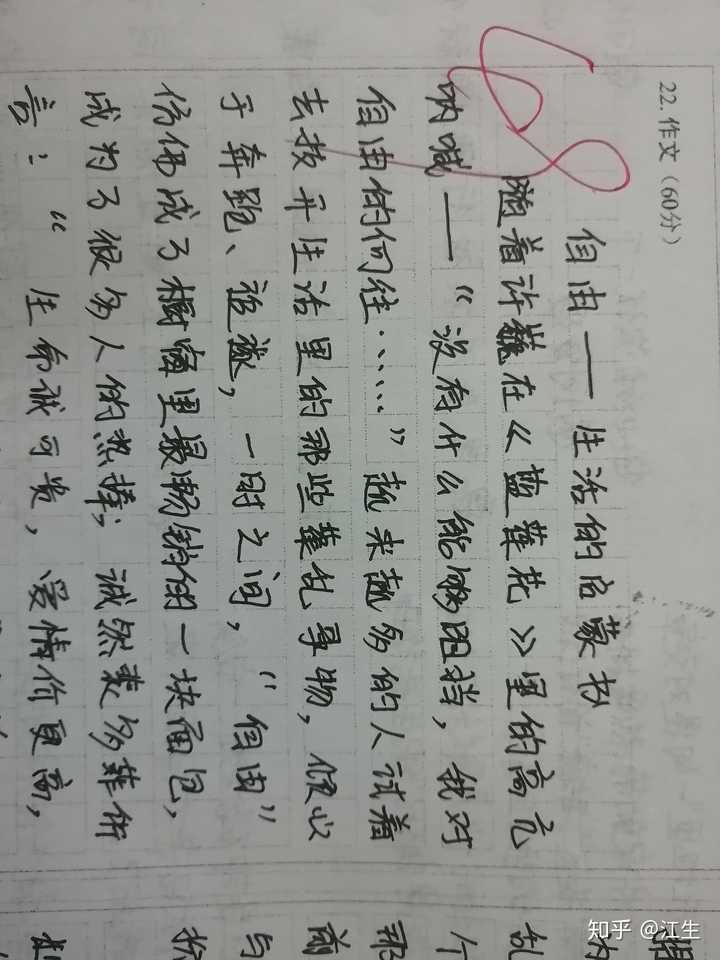 22. 作文（60分）
58
自由——生活的启蒙书
随着许巍在《蓝莲花》里的高亢
呐喊——“没有什么能够阻挡，我对
自由的向往……”越来越多的人试着
去拨开生活里的那些事物，心
于奔跑、追逐，一时之间，“自由”
仿佛成了橱窗里最畅销的一块面包，
成为了很多人的热捧；诚然裴多菲所
言：“生命诚可贵，爱情价更高，
知乎 @江生